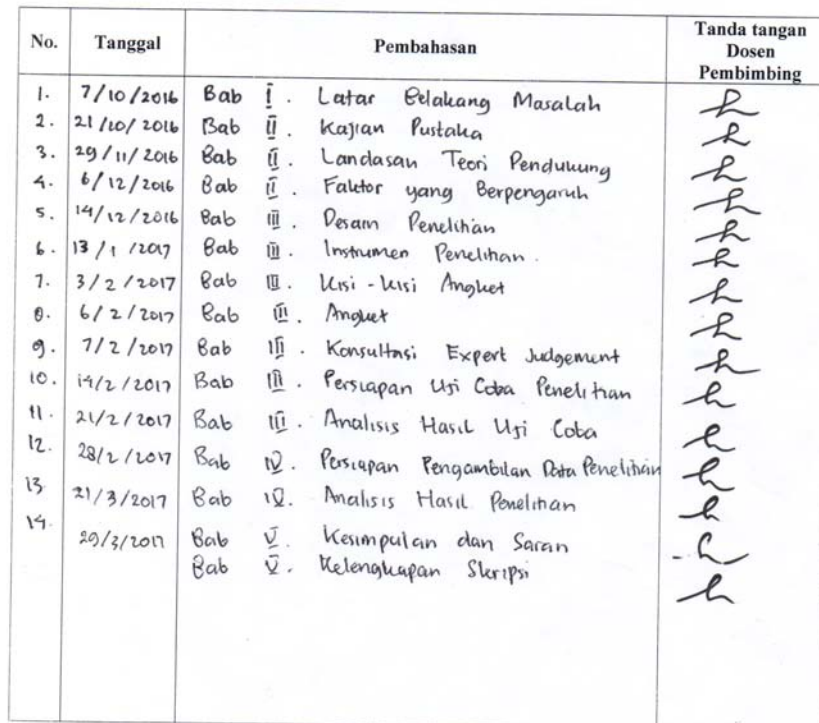 No. Tanggal Pembahasan Tanda tangan Dosen Pembimbing
1. 7/10/2016 Bab I. Latar Belakang Masalah
2. 21/10/2016 Bab II. Kajian Pustaka
3. 29/11/2016 Bab II. Landasan Teori Pendukung
4. 6/12/2016 Bab II. Faktor yang Berpengaruh
5. 14/12/2016 Bab III. Desain Penelitian
6. 13/1/2017 Bab III. Instrumen Penelitian.
7. 3/2/2017 Bab III. Kisi-Kisi Angket
8. 6/2/2017 Bab III. Angket
9. 7/2/2017 Bab III. Konsultasi Expert Judgement
10. 14/2/2017 Bab III. Persiapan Uji Coba Penelitian
11. 21/2/2017 Bab III. Analisis Hasil Uji Coba
12. 28/2/2017 Bab IV. Persiapan Pengambilan Data Penelitian
13. 21/3/2017 Bab IV. Analisis Hasil Penelitian
14. 29/3/2017 Bab V. Kesimpulan dan Saran
Bab V. Kelengkapan Skripsi